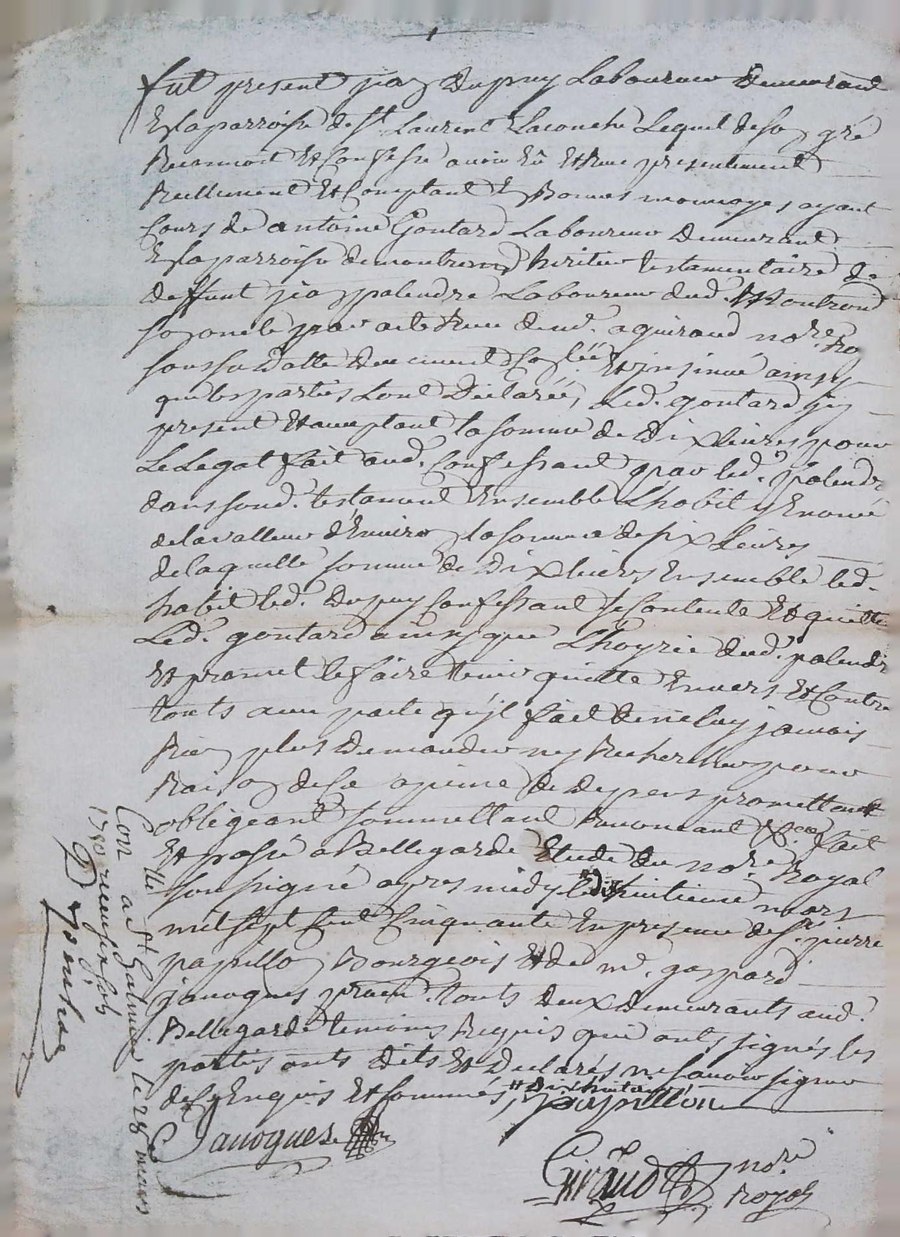 fut present jean Dupuy Laboureur demeurant
En la parroisse de St Laurent Laconche Lequel de son gré
Reconnoit Et Confesse avoir Eû Et Reçu presentement
Reellement Et Comptant En Bonnes monnoyes ayant
Cours de antoine Goutard Laboureur Demeurant
En la parroisse de montrond heritier testamentaire de
deffunt jean palendre Laboureur dud. Montrond
par acte Reçu de me. aguiraud nore. Ro
sous sa datte duement Controllée Et insinué ainsy
que les parties L'ont Declarées, Led. goutard icy
present Et acceptant la somme de Dix livres pour
Le Legat fait aud. Confessant par led. palendre
dans sond. testament Ensemble L'habit y Enoncé
de la valleur d'Environ la somme de six Livres
de laquelle somme de Dix livres Ensemble led.
habit led. Dupuy Confessant se Contente Et quitte
Led. goutard ainsy que L'hoyrie dud. palendre
Et promet le faire tenir quitte Envers Et Contre
touts avec pacte qu'il fait de ne luy jamais
Rien plus Demander ny Rechercher pour
Raison de Ce a peine de Depens promettant
obligeant soumettant Renonçant &ca. fait
Et passé a Bellegarde Etude du nore. Royal
soussigné apres midy le dixhuitieme mars
mil sept Cent Cinquante En presence de sr. pierre
papillon Bourgeois Et de me. gaspard
javogues pratn. touts deux demeurants aud.
Bellegarde temoins Requis qui ont signés les
parties onts dits Et Declarés ne sçavoir signer
de Ce Enquis Et sommés, " Dixhuit
papillon
Javogues
Giraud nore.
Royal
Conllé a St Galmier le 28 mars
1750 reçu six sols